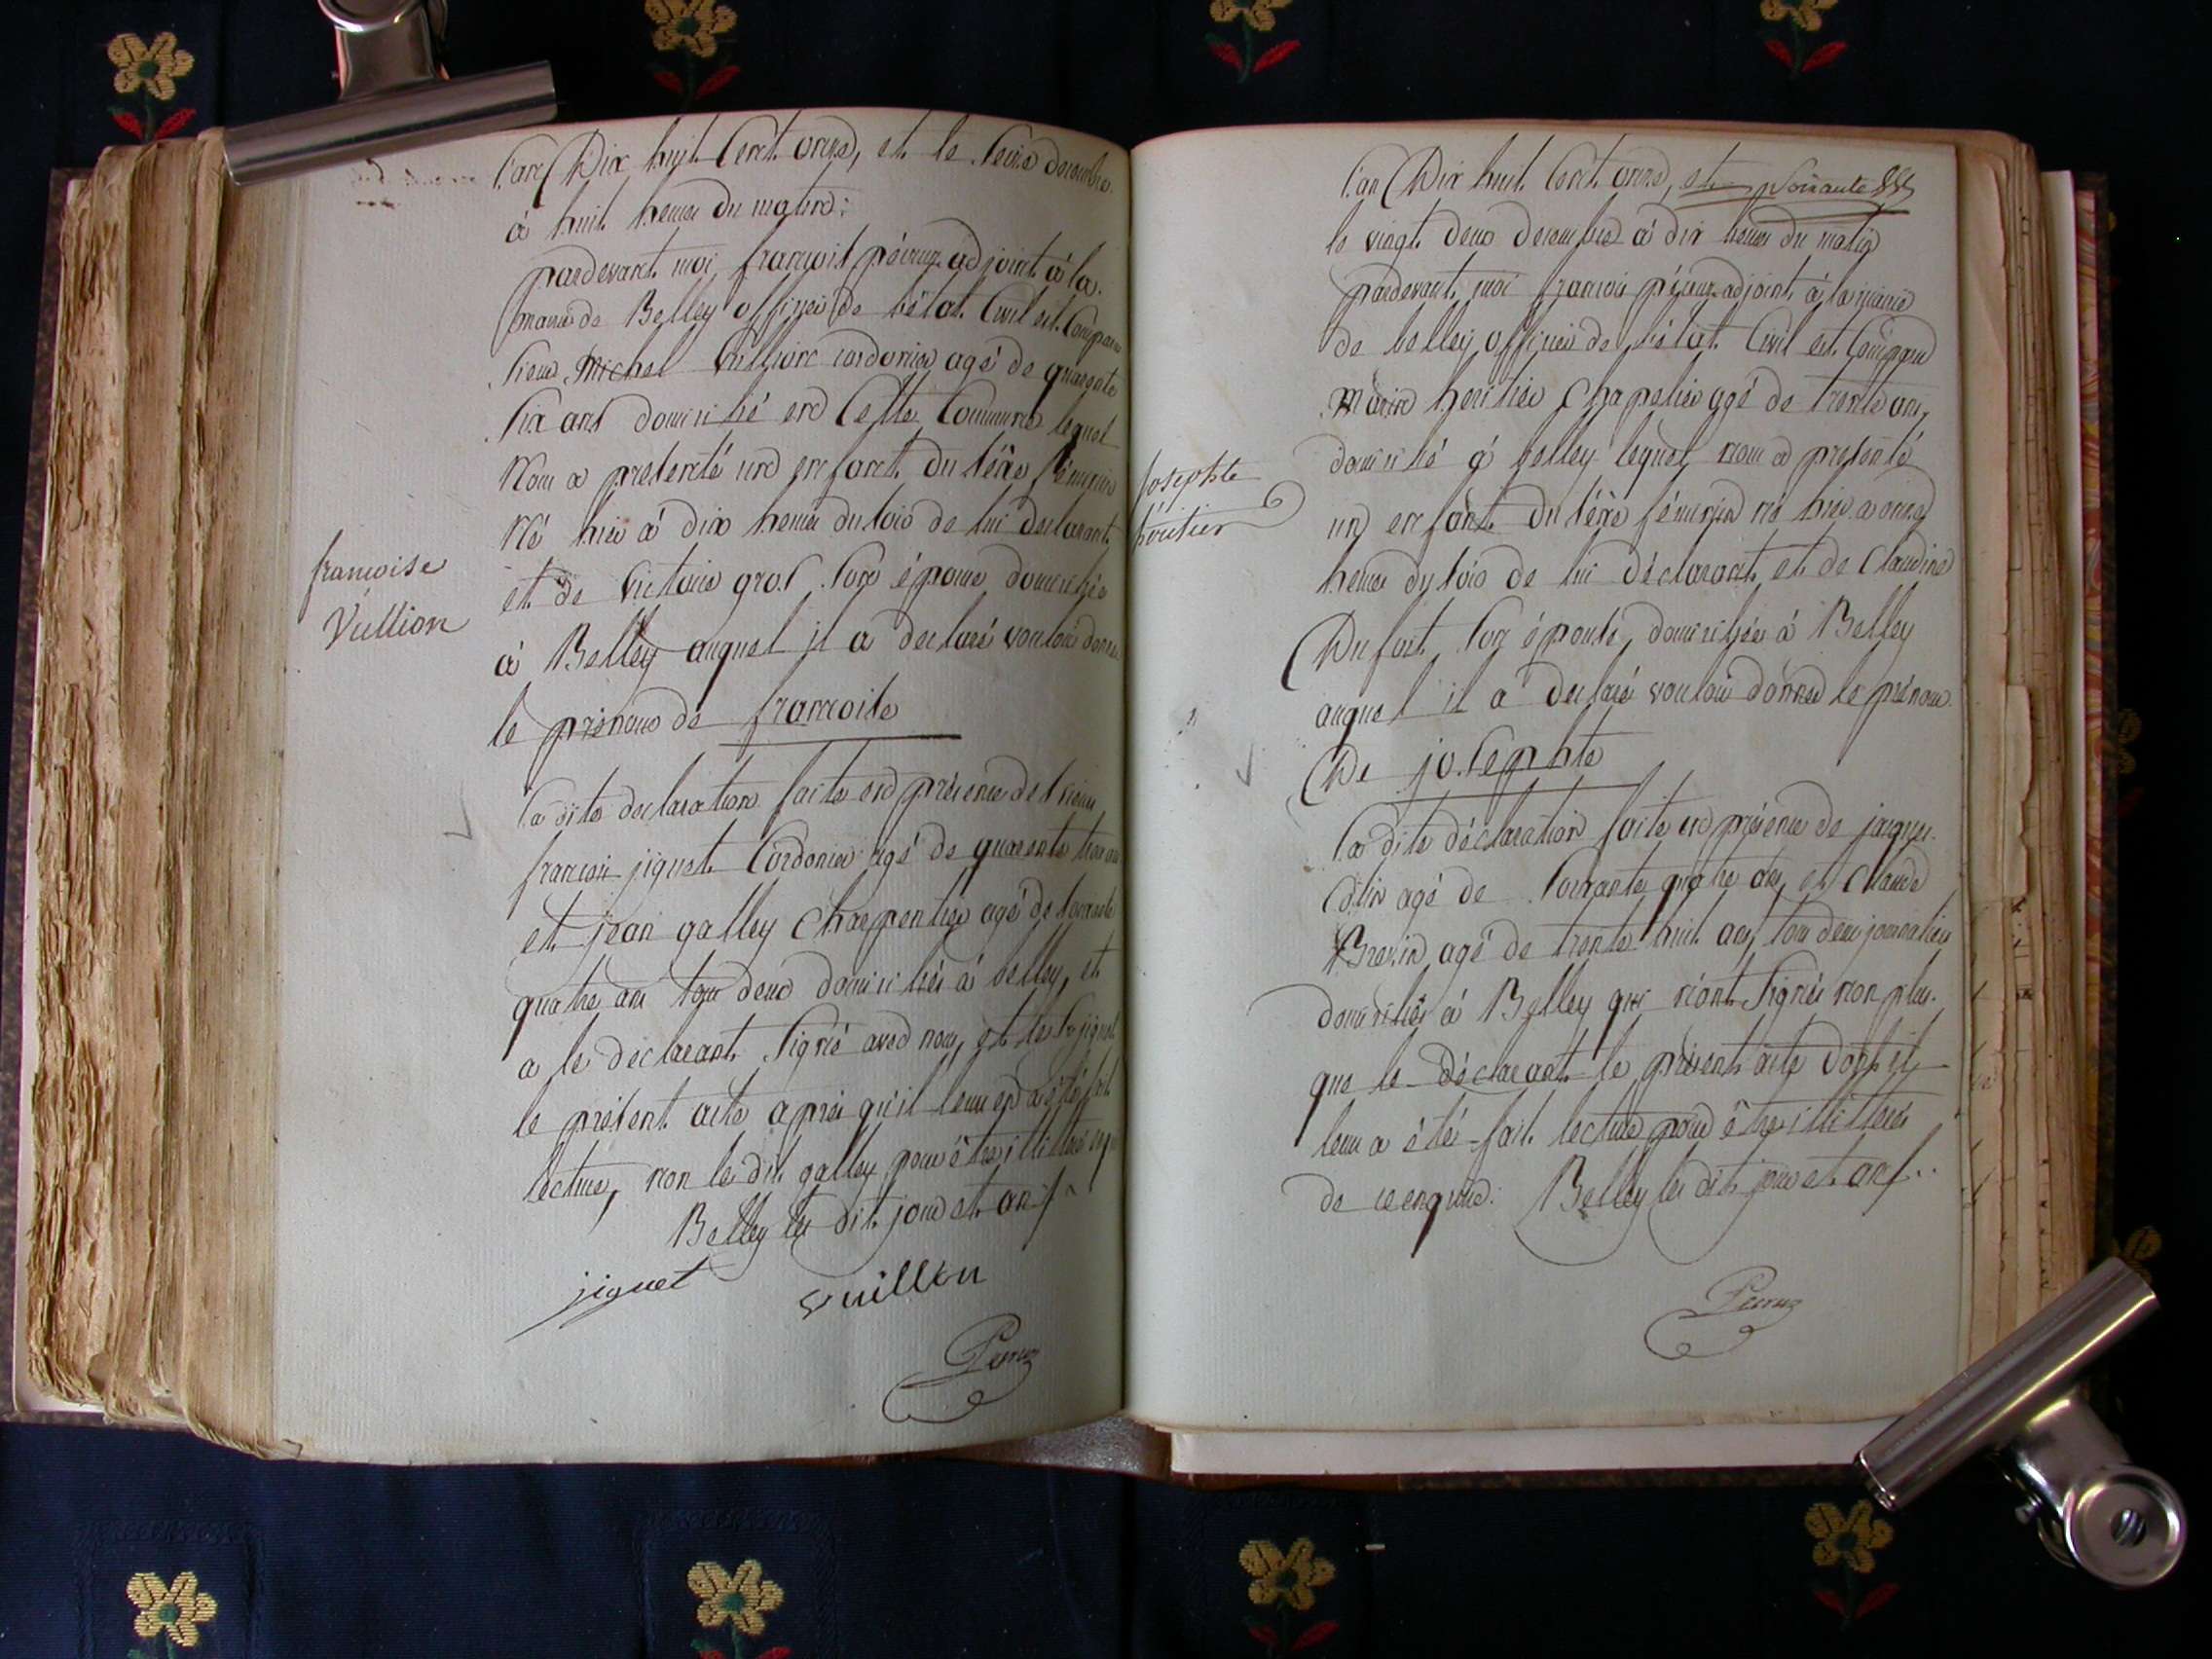 françoise
Vullion
L'an Dix huit Cent onze, et le seize decembre
à huit heures du matin:
pardevant moi françois péroux adjoint à la
mairie de Belley officier de l'état Civil est Comparu
sieur Michel Vullion cordonier agé de quarente
six ans domicilié en Cette Commune lequel
Nous a presenté un enfant du séxe féminin
Né hier à dix heures du soir de lui declarant
et de Victoire gros son épouse domiciliée
à Belley auquel il a declaré vouloir donner
le prénom de françoise
la dite declaration faite en présence de sieur
françois jiguet Cordonier agé de quarente trois ans
et jean galley Charpentier agé de soixante
quatre ans tous deux domiciliés à belley, et
a le déclarant signé avec nous, et le Sr jiguet
le présent acte après qu'il leur en a été fait
lecture, non le dit galley pour être illittéré
Belley les dit jour et an
jiguet
vuillen
josephte
héritier
L'an Dix huit Cent onze, et soixante
le vingt deux decembre à dix heures du matin
pardevant moi françois péroux adjoint à la mairie
de belley officier de l'état Civil est Comparu
Marin heritier Chapelier agé de trente ans,
domicilié à belley lequel nous a presenté
un enfant du séxe féminin né hier a onze
heures du soir de lui déclarant et de Claudine
Dufort son épouse, domiciliée à Belley
auquel il a declaré vouloir donner le prénom
De josephte
la dite déclaration faite en présence de jacques
Colin agé de soixante quatre ans, et Claude
agé de trente huit ans, tous deux journaliers
domiciliés à Belley qui n'ont signés non plus
que le déclarant le présent acte dont il
leur a été fait lecture pour être illittérés
de ce enquis. Belley les dit jour et an